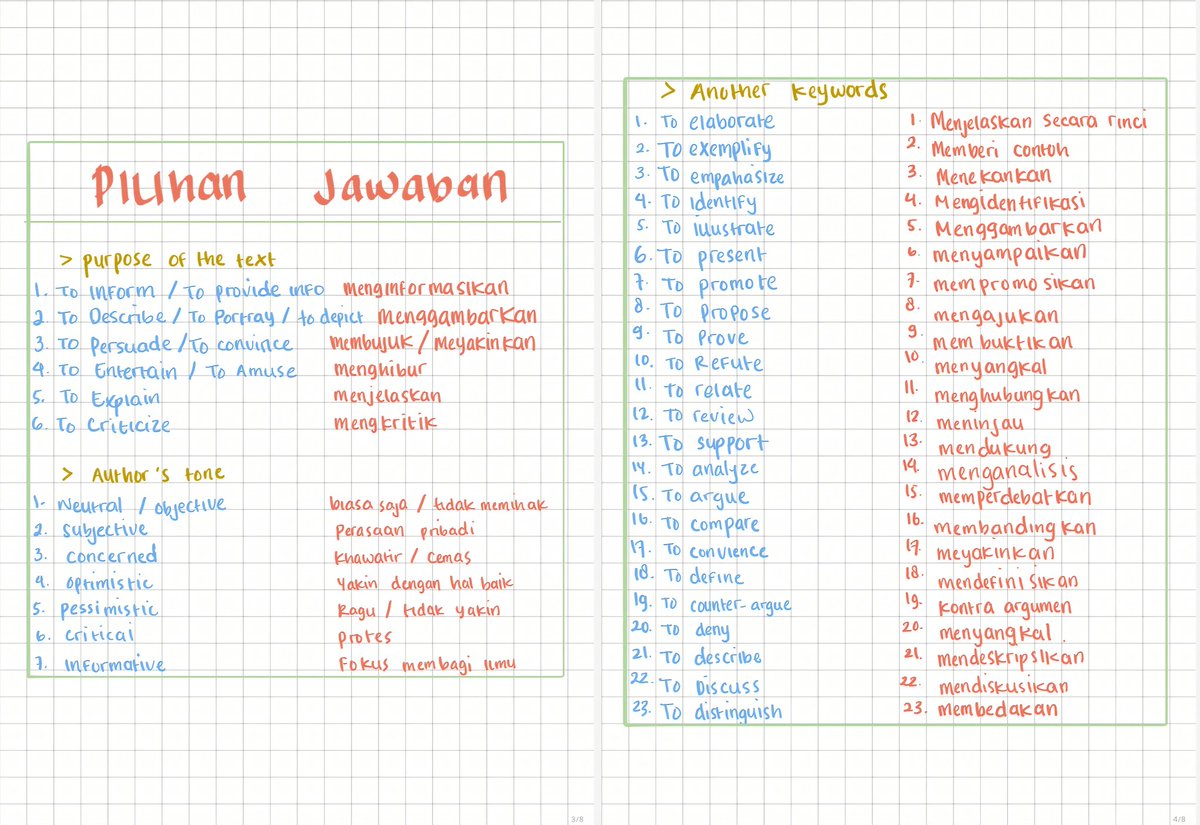 Pilihan Jawaban
> purpose of the text
1. To Inform / To provide info menginformasikan
2. To Describe / To Portray / to depict menggambarkan
3. To Persuade / To convince membujuk / Meyakinkan
4. To Entertain / To Amuse menghibur
5. To Explain menjelaskan
6. To Criticize mengkritik
> Author's tone
1. Neutral / objective biasa saja / tidak memihak
2. Subjective Perasaan pribadi
3. concerned khawatir / Cemas
4. optimistic Yakin dengan hal baik
5. pessimistic Ragu / tidak yakin
6. Critical protes
7. Informative Fokus membagi ilmu
3/8
> Another keywords
1. To elaborate 1. Menjelaskan secara rinci
2. To exemplify 2. Memberi contoh
3. To empahasize 3. Menekankan
4. To Identify 4. Mengidentifikasi
5. To illustrate 5. Menggambarkan
6. To present 6. menyampaikan
7. To promote 7. mempromosikan
8. To Propose 8. mengajukan
9. To Prove 9. membuktikan
10. To Refute 10. menyangkal
11. To relate 11. menghubungkan
12. To review 12. meninjau
13. To support 13. mendukung
14. To analyze 14. menganalisis
15. To argue 15. memperdebatkan
16. To compare 16. membandingkan
17. To convience 17. meyakinkan
18. To define 18. mendefinisikan
19. To counter-argue 19. kontra argumen
20. To deny 20. menyangkal.
21. To describe 21. mendeskripsikan
22. To Discuss 22. mendiskusikan
23. To distinguish 23. membedakan
4/8